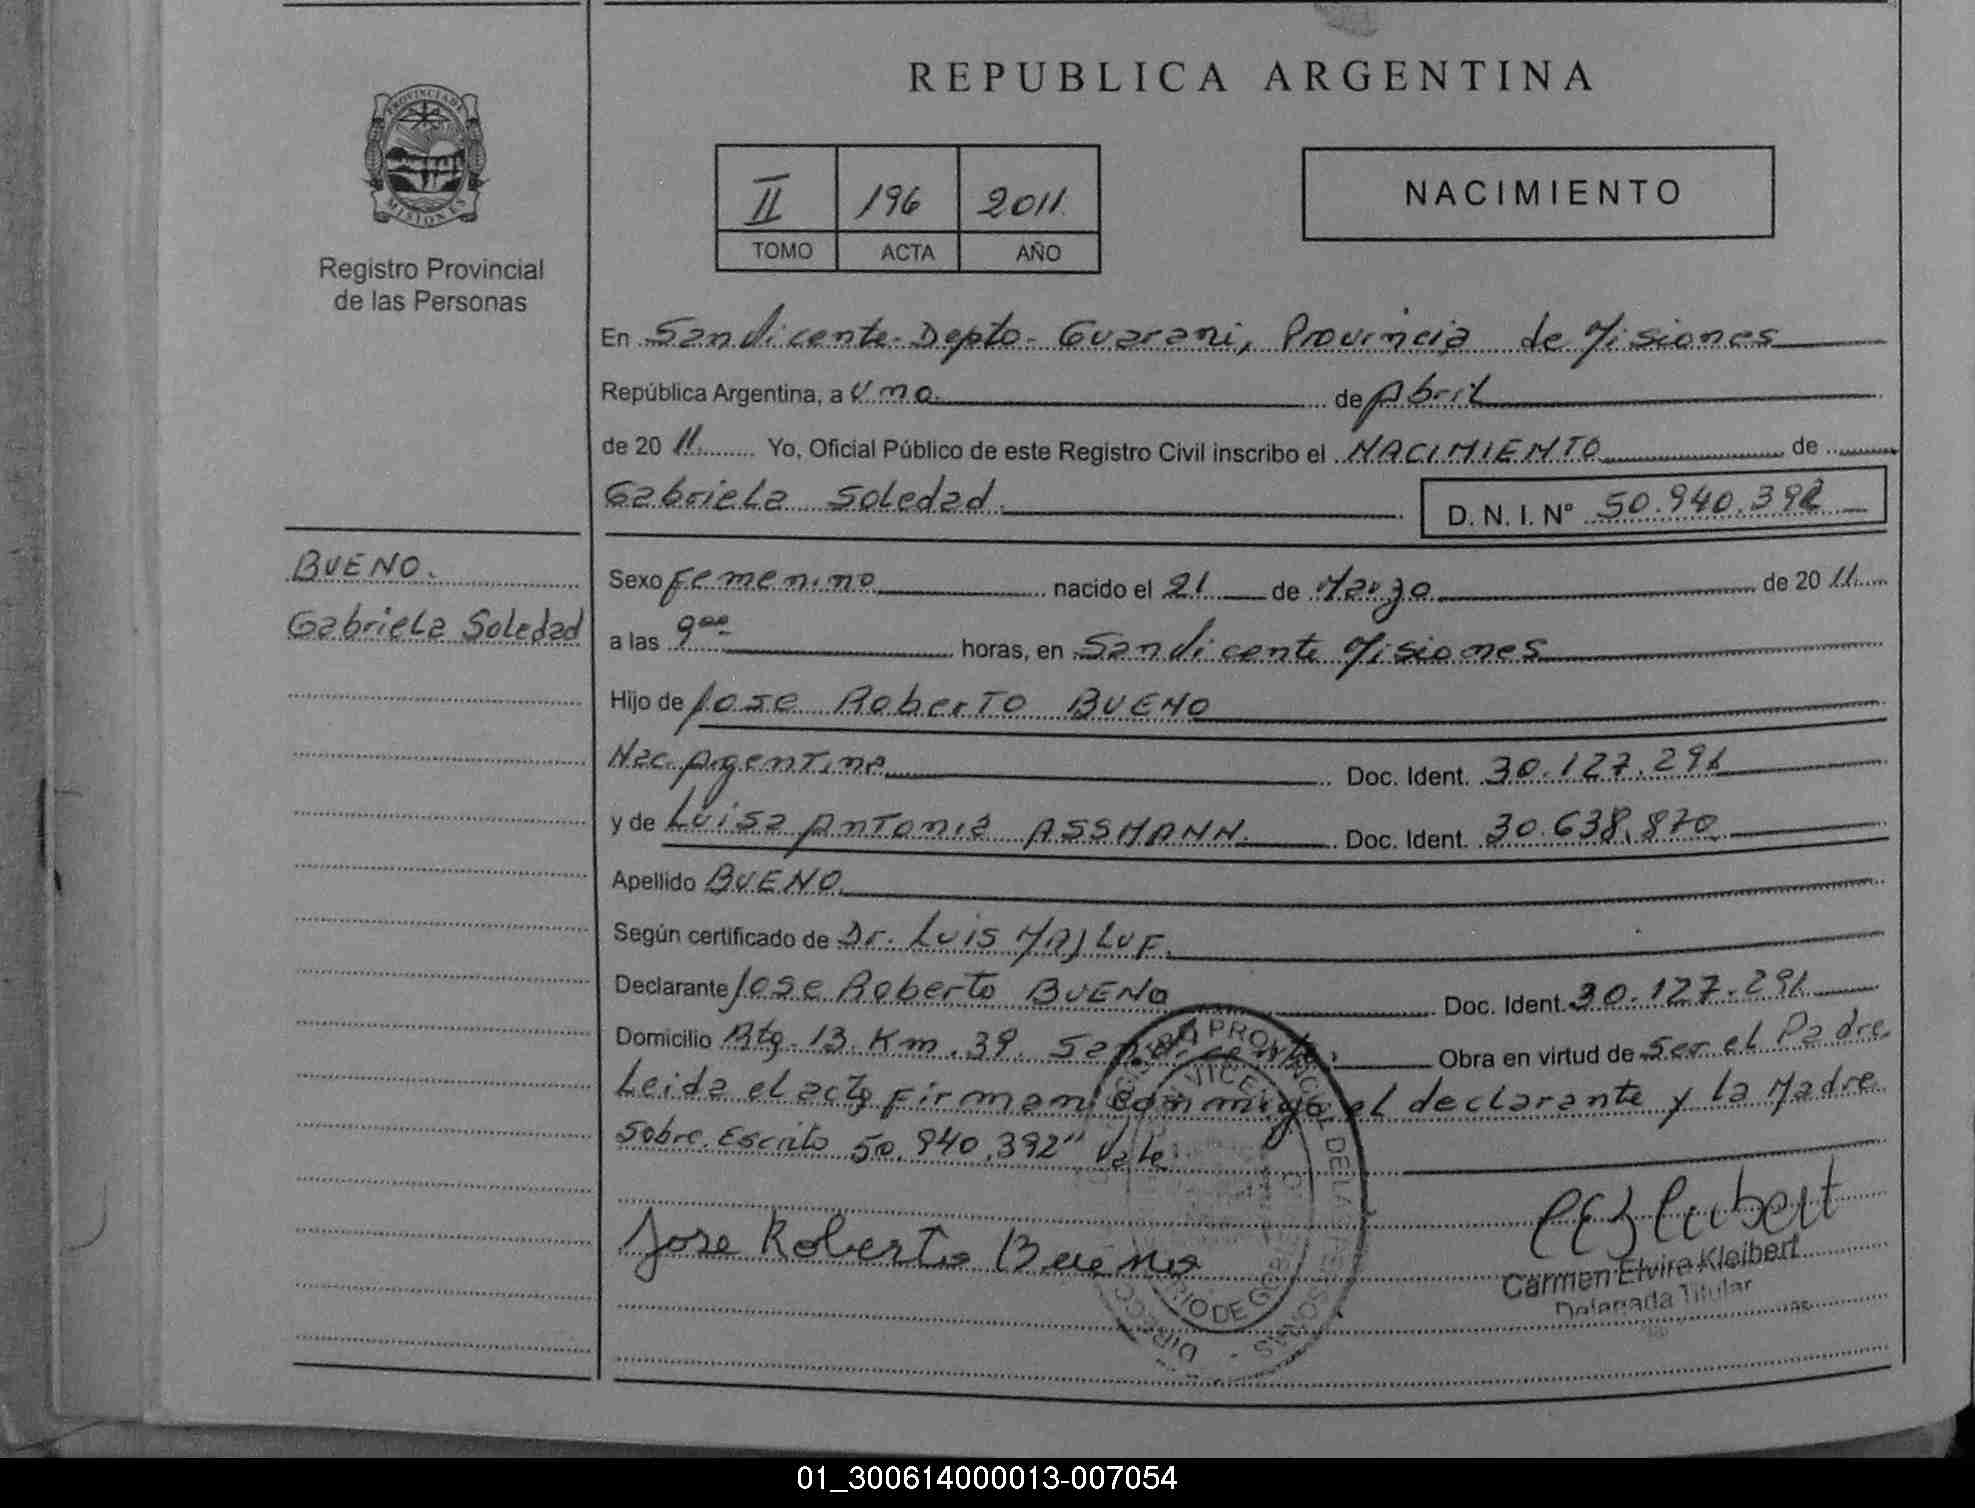 REPUBLICA ARGENTINA
PROVINCIA DE
MISIONES
Registro Provincial
de las Personas
II 196 2011
TOMO ACTA AÑO
NACIMIENTO
En San Vicente - Depto - Guarani, Provincia de Misiones
República Argentina, a uno de Abril
de 2011 Yo, Oficial Público de este Registro Civil inscribo el NACIMIENTO de
Gabriela Soledad D. N. I. N° 50.940.392
BUENO.
Gabriela Soledad
Sexo Femenino nacido el 21 de Marzo de 2011
a las 9 00 horas, en San Vicente Misiones
Hijo de Jose Roberto BUENO
Nac. Argentina Doc. Ident. 30.127.291
y de Luisa Antonia ASSMANN Doc. Ident. 30.638.870
Apellido BUENO
Según certificado de Dr. Luis MAJLUF.
Declarante Jose Roberto BUENO Doc. Ident. 30.127.291
Domicilio Rta. 13 Km. 39. San Vicente. Obra en virtud de ser el Padre
Leida el acta firman conmigo el declarante y la Madre
Sobre Escrito 50.940.392" Vale
Jose Roberto Bueno
Carmen Elvira Kleibert
Delegada Titular
01_300614000013-007054